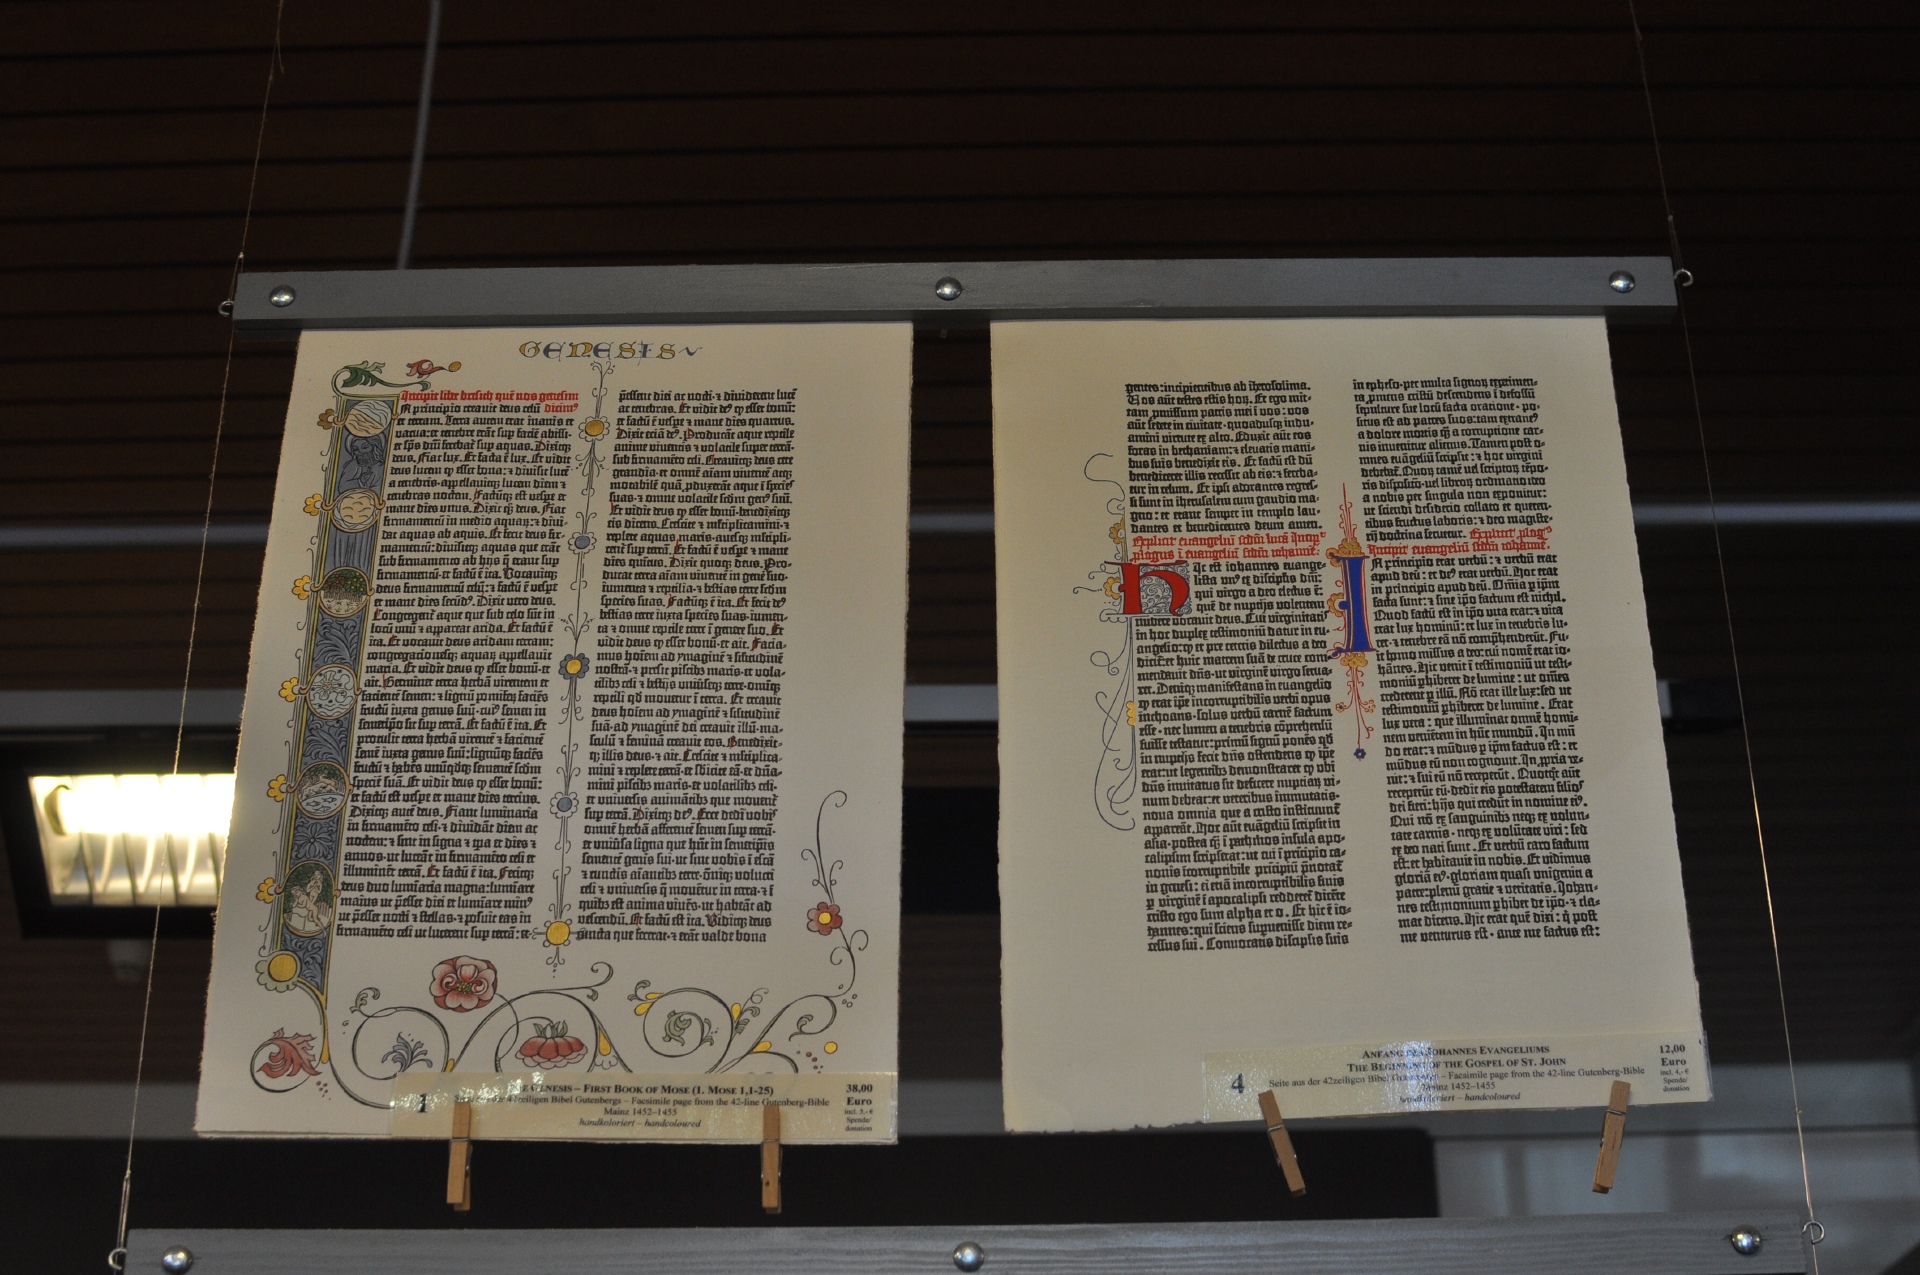 GENESIS
Incipit liber bresith quē nos genesim
A principio creauit deus celū dicim⁹
et terram. Terra autem erat inanis et
vacua: et tenebre erāt sup faciē abissi:
et spūs dn̄i ferebat̄ sup aquas. Dixitqꝫ
deus. Fiat lux. Et facta ē lux. Et vidit
deus lucem ꝙ esset bona: ⁊ diuisit lucē
a tenebris·appellauitqꝫ lucem diem ⁊
tenebras noctem. Factūqꝫ est vespe et
mane dies vnus. Dixit qꝫ deus. Fiat
firmamentū in medio aquaꝝ: ⁊ diui-
dat aquas ab aquis. Et fecit deus fir-
mamentū: diuisitqꝫ aquas que erāt
sub firmamento ab hijs q̄ erant sup
firmamentū: et factū ē ita. Vocauitqꝫ
deus firmamentū celū: ⁊ factū ē vespe
et mane dies secūd⁹. Dixit vero deus.
Congregent̄ aque que sub celo sūt in
locū vnū ⁊ appareat arida. Et factū ē
ita. Et vocauit deus aridam terram:
congregacionesqꝫ aquaꝝ appellauit
maria. Et vidit deus ꝙ esset bonū·et
ait. Germinet terra herbā virentem et
facientē semen: et lignū pomiferū faciēs
fructū iuxta genus suū·cui⁹ semen in
semetip̄o sit sup terrā. Et factū ē ita. Et
protulit terra herbā virentē ⁊ facientē
semē iuxta genus suū: lignūqꝫ faciēs
fructū ⁊ habēs vnūqdqꝫ sementē scdm
speciē suā. Et vidit deus ꝙ esset bonū:
et factū est vespe et mane dies tercius.
Dixitqꝫ autē deus. Fiant luminaria
in firmamēto celi·⁊ diuidāt diem ac
noctem: ⁊ sint in signa ⁊ tp̄a et dies ⁊
annos·ut luceāt in firmamēto celi et
illuminēt terrā. Et factū ē ita. Fecitqꝫ
deus duo luminaria magna: luminare
maius ut p̄esset diei et luminare min⁹
ut p̄esset nocti ⁊ stellas·⁊ posuit eas in
firmamēto celi ut lucerent sup terrā: et
p̄essent diei ac nocti·⁊ diuiderent lucē
ac tenebras. Et vidit de⁹ ꝙ esset bonū:
et factū ē vespe ⁊ mane dies quartus.
Dixit eciā de⁹. Producāt aque reptile
anime viuentis ⁊ volatile super terrā·
sub firmamēto celi. Creauitqꝫ deus cete
grandia·et omnē aīam viuentē atqꝫ
motabilē quā pduxerāt aque ī species
suas·⁊ omne volatile scdm gen⁹ suū.
Et vidit deus ꝙ esset bonū·benedixitqꝫ
eis dicens. Crescite ⁊ mltiplicamini·⁊
replete aquas maris·auesqꝫ mltipli-
cent̄ sup terrā. Et factū ē vespe ⁊ mane
dies quintus. Dixit quoqꝫ deus. Pro-
ducat terra aīam viuentē in gene suo·
iumenta ⁊ reptilia·⁊ bestias terre scdm
species suas. Factūqꝫ ē ita. Et fecit de⁹
bestias terre iuxta species suas·iumen-
ta ⁊ omne reptile terre ī genere suo. Et
vidit deus ꝙ esset bonū·et ait. Facia-
mus hoīem ad ymaginē ⁊ silitudinē
nostrā·⁊ presit piscibs maris·et vola-
tilibs celi·⁊ bestijs vniūseqꝫ terre·omīqꝫ
reptili qd mouetur ī terra. Et creauit
deus hoīem ad ymaginē ⁊ silitudinē
suā·ad ymaginē dei creauit illū·ma-
sculū ⁊ feminā creauit eos. Benedixit-
qꝫ illis deus·⁊ ait. Crescite ⁊ mltiplica-
mini ⁊ replete terrā·et sbicite eā·et dn̄a-
mini piscibs maris·et volatilibs celi·
et vniuersis animātibs que mouent̄
sup terrā. Dixitqꝫ de⁹. Ecce dedi vobis
omnē herbā afferentē semen sup terrā·
et vniūsa ligna que hn̄t in semetip̄is
sementē genis sui·ut sint vobis ī escā
⁊ cunctis aīantibs terre·ōniqꝫ volucri
celi ⁊ vniuersis q̄ mouent̄ in terra·⁊ ī
quibs est anima viuēs·ut habeāt ad
vescendū. Et factū est ita. Viditqꝫ deus
cuncta que fecerat·⁊ erāt valde bona
1
GENESIS – FIRST BOOK OF MOSE (1. MOSE 1,1-25)
42zeiligen Bibel Gutenbergs – Facsimile page from the 42-line Gutenberg-Bible
Mainz 1452–1455
handkoloriert – handcoloured
38,00
Euro
incl. 5,- €
Spende/
donation
gentes: incipientibus ab iherosolima.
Vos aūt testes estis hoꝝ. Et ego mit-
tam pmissum patris mei ī vos: vos
aūt sedete in ciuitate·quoadusqꝫ indu-
amini virtute ex alto. Eduxit aūt eos
foras in bethaniam: ⁊ eleuatis mani-
bus suis benedixit eis. Et factū est dū
benediceret illis recessit ab eis: ⁊ fereba-
tur in celum. Et ipsi adorantes regres-
si sunt in iherusalem cum gaudio ma-
gno: et erant semper in templo lau-
dantes et benedicentes deum amen.
Explicit euangeliū scdm lucā Incip̄
plogus ī euangeliū scdm iohannē.
Hic est iohannes euange-
lista vn⁹ ex disciplis dn̄i:
qui virgo a deo electus ē:
quē de nuptijs volentem
nubere vocauit deus. Cui virginitatis
in hoc duplex testimoniū datur in eu-
angelio: ꝙ et pre ceteris dilectus a deo
dicit̄: et huic matrem suā de cruce com-
mendauit dn̄s·ut virginē virgo serua-
ret. Deniqꝫ manifestans in euangelio
ꝙ erat ip̄e incorruptibilis verbi opus
inchoans·solus verbū carnē factum
esse·nec lumen a tenebris cōprehensū
fuisse testatur: primū signū ponēs qd
in nuptijs fecit dn̄s ostendens ꝙ ip̄e
erat: ut legentibs demonstraret ꝙ vbi
dn̄s inuitatus sit deficere nuptiaꝝ vi-
num debeat: et veteribus immutatis·
noua omnia que a cristo instituunt̄
appareāt. Hoc aūt euāgeliū scripsit in
asia·postea q̄ ī pathmos insula apo-
calipsim scripserat: ut cui ī principio ca-
nonis incorruptibile principiū p̄notat̄
in genesi: ei etiā incorruptibilis finis
p virginē ī apocalipsi redderet̄ dicēte
cristo ego sum alpha et o. Et hic ē io-
hannes: qui sciens supuenisse diem re-
cessus sui. Conuocatis discipulis suis
in epheso·per multa signoꝝ experimen-
ta pmens cristū descendens ī defossū
sepulture sue locū facta oratione·po-
situs est ad patres suos: tam extrane⁹
a dolore mortis q̄ a corruptione car-
nis inuenitur alienus. Tamen post o-
mnes euāgeliū scripsit: ⁊ hoc virgini
debebat̄. Quoꝝ tamē vel scriptoꝝ tēpo-
ris disposicō·vel libroꝝ ordinatio ideo
a nobis per singula non exponitur:
ut sciendi desiderio collato et queren-
tibus fructus laboris: ⁊ deo magiste-
rij doctrina seruetur. Explicit plog⁹
Incipit euangeliū scdm iohannē.
In principio erat verbū: ⁊ verbū erat
apud deū: et de⁹ erat verbū. Hoc erat
in principio apud deū. Omīa p ip̄m
facta sunt: ⁊ sine ip̄o factum est nichil.
Quod factū est in ip̄o vita erat: ⁊ vita
erat lux hominū: et lux in tenebris lu-
cet·⁊ tenebre eā nō comp̄henderūt. Fu-
it homo missus a deo: cui nomē erat io-
hānes. Hic venit ī testimoniū ut testi-
moniū phiberet de lumine: ut omēs
crederent p illū. Nō erat ille lux: sed ut
testimoniū phiberet de lumine. Erat
lux vera: que illuminat omnē homi-
nem venientem in hūc mundū. In mū
do erat: ⁊ mūdus p ip̄m factus est: et
mūdus eū non cognouit. In ppria ve-
nit: ⁊ sui eū nō receperūt. Quotqꝫ aūt
receperūt eū·dedit eis potestatem filios
dei fieri: hijs qui credūt in nomine ei⁹.
Qui nō ex sanguinibs neqꝫ ex volun-
tate carnis·neqꝫ ex volūtate viri: sed
ex deo nati sunt. Et verbū caro factum
est: et habitauit in nobis. Et vidimus
gloriā ei⁹·gloriam quasi vnigeniti a
patre: plenū gratie ⁊ veritatis. Iohan-
nes testimonium phibet de ip̄o·⁊ cla-
mat dicens. Hic erat quē dixi: q̄ post
me venturus est·ante me factus est:
4
ANFANG DES JOHANNES EVANGELIUMS
THE BEGINNING OF THE GOSPEL OF ST. JOHN
Seite aus der 42zeiligen Bibel Gutenbergs – Facsimile page from the 42-line Gutenberg-Bible
Mainz 1452–1455
handkoloriert – handcoloured
12,00
Euro
incl. 4,- €
Spende/
donation